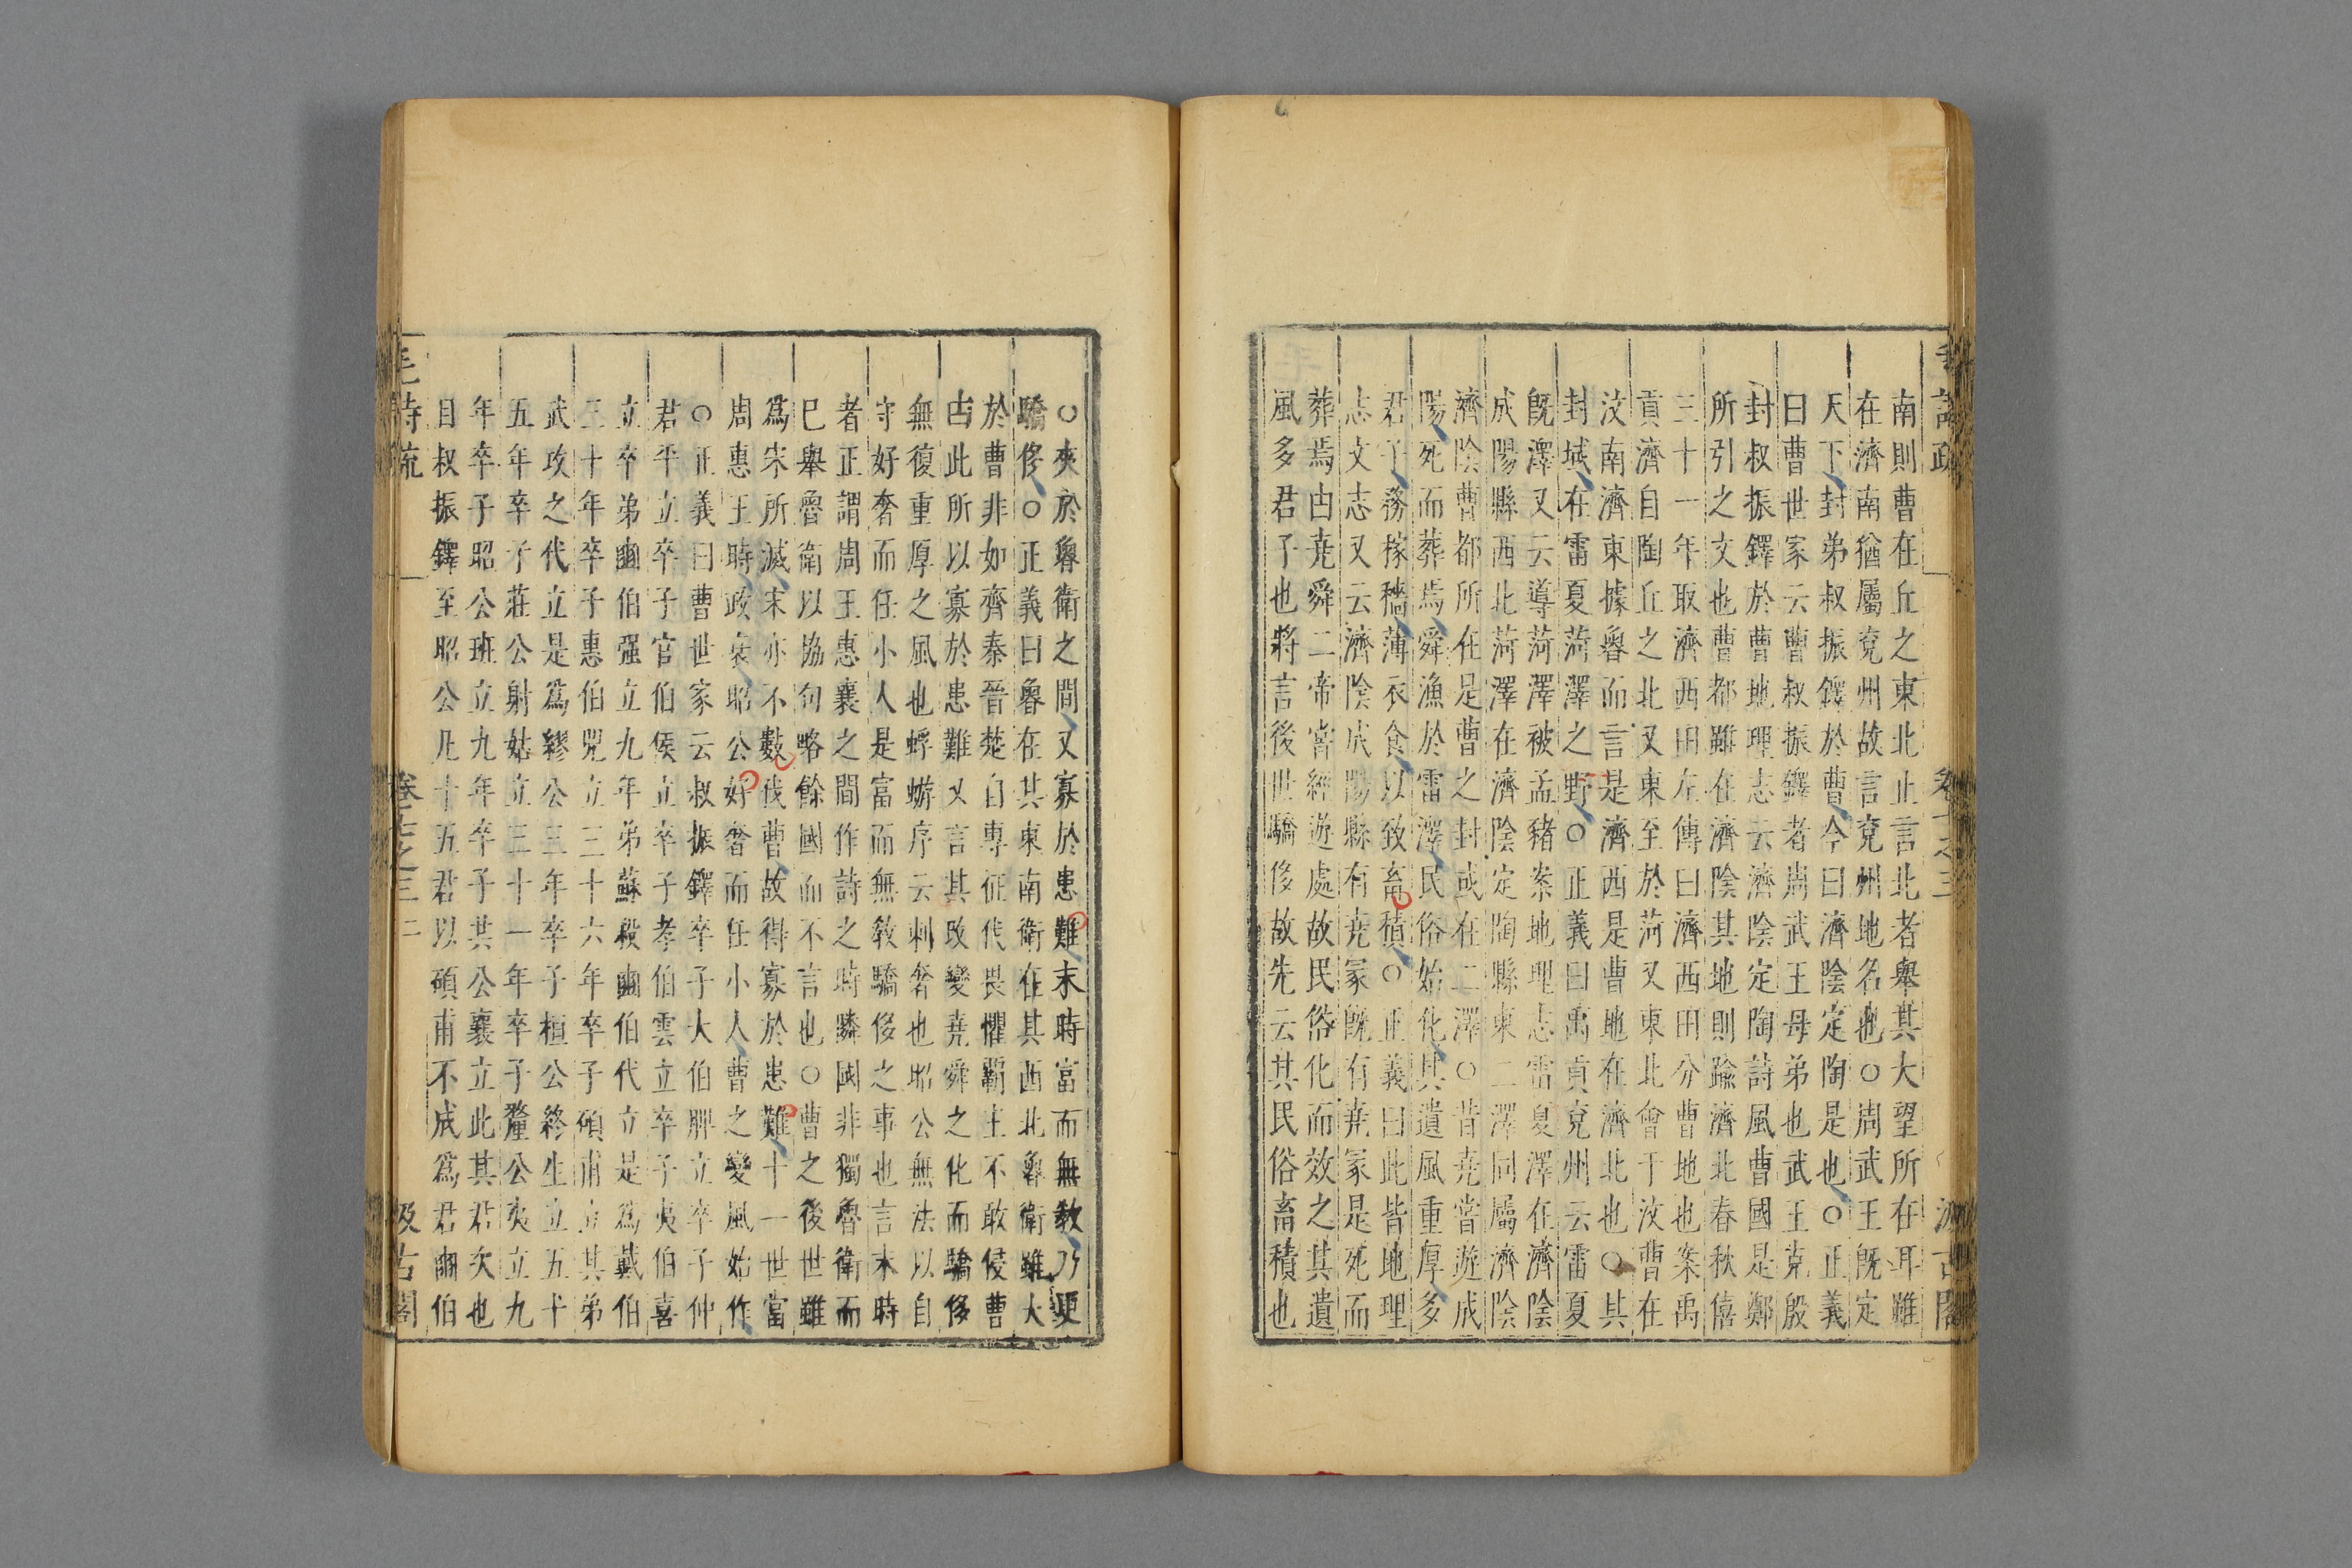 南則曹在丘之東北止言北者舉其大望所在耳雖
在濟南猶屬兗州故言兗州地名也○周武王既定
天下封弟叔振鐸於曹今曰濟陰定陶是也○正義
曰曹世家云曹叔振鐸者周武王母弟也武王克殷
封叔振鐸於曹地理志云濟陰定陶詩風曹國是鄭
所引之文也曹都雖在濟陰其地則踰濟北春秋僖
三十一年取濟西田左傳曰濟西田分曹地也案禹
貢濟自陶丘之北又東至於菏又東北會于汶曹在
汶南濟東據魯而言是濟西是曹地在濟北也○其
封域在雷夏菏澤之野○正義曰禹貢兗州云雷夏
既澤又云導菏澤被孟豬案地理志雷夏澤在濟陰
成陽縣西北菏澤在濟陰定陶縣東二澤同屬濟陰
濟陰曹都所在是曹之封或在二澤○昔堯嘗遊成
陽死而葬焉舜漁於雷澤民俗始化其遺風重厚多
君子務稼穡薄衣食以致畜積○正義曰此皆地理
志文志又云濟陰成陽縣有堯冢既有堯冢是死而
葬焉由堯舜二帝嘗經遊處故民俗化而效之其遺
風多君子也將言後世驕侈故先云其民俗畜積也
○夾於魯衛之間又寡於患難末時富而無教乃更
驕侈○正義曰魯在其東南衛在其西北魯衛雖大
於曹非如齊秦晉楚自專征伐畏懼霸主不敢侵曹
由此所以寡於患難又言其改變堯舜之化而驕侈
無復重厚之風也蜉蝣序云刺奢也昭公無法以自
守好奢而任小人是富而無教驕侈之事也言末時
者正謂周王惠襄之間作詩之時隣國非獨魯衛而
已舉魯衛以協句略餘國而不言也○曹之後世雖
為宋所滅宋亦不數伐曹故得寡於患難十一世當
周惠王時政衰昭公好奢而任小人曹之變風始作
○正義曰曹世家云叔振鐸卒子大伯脾立卒子仲
君平立卒子宮伯侯立卒子孝伯雲立卒子夷伯喜
立卒弟幽伯强立九年弟蘇殺幽伯代立是為戴伯
三十年卒子惠伯兕立三十六年卒子碩甫立其弟
武攻之代立是為繆公三年卒子桓公終生立五十
五年卒子莊公射姑立三十一年卒子釐公夷立九
年卒子昭公班立九年卒子其公襄立此其君次也
自叔振鐸至昭公凡十五君以碩甫不成為君幽伯
毛詩疏 卷七之三 二 汲古閣